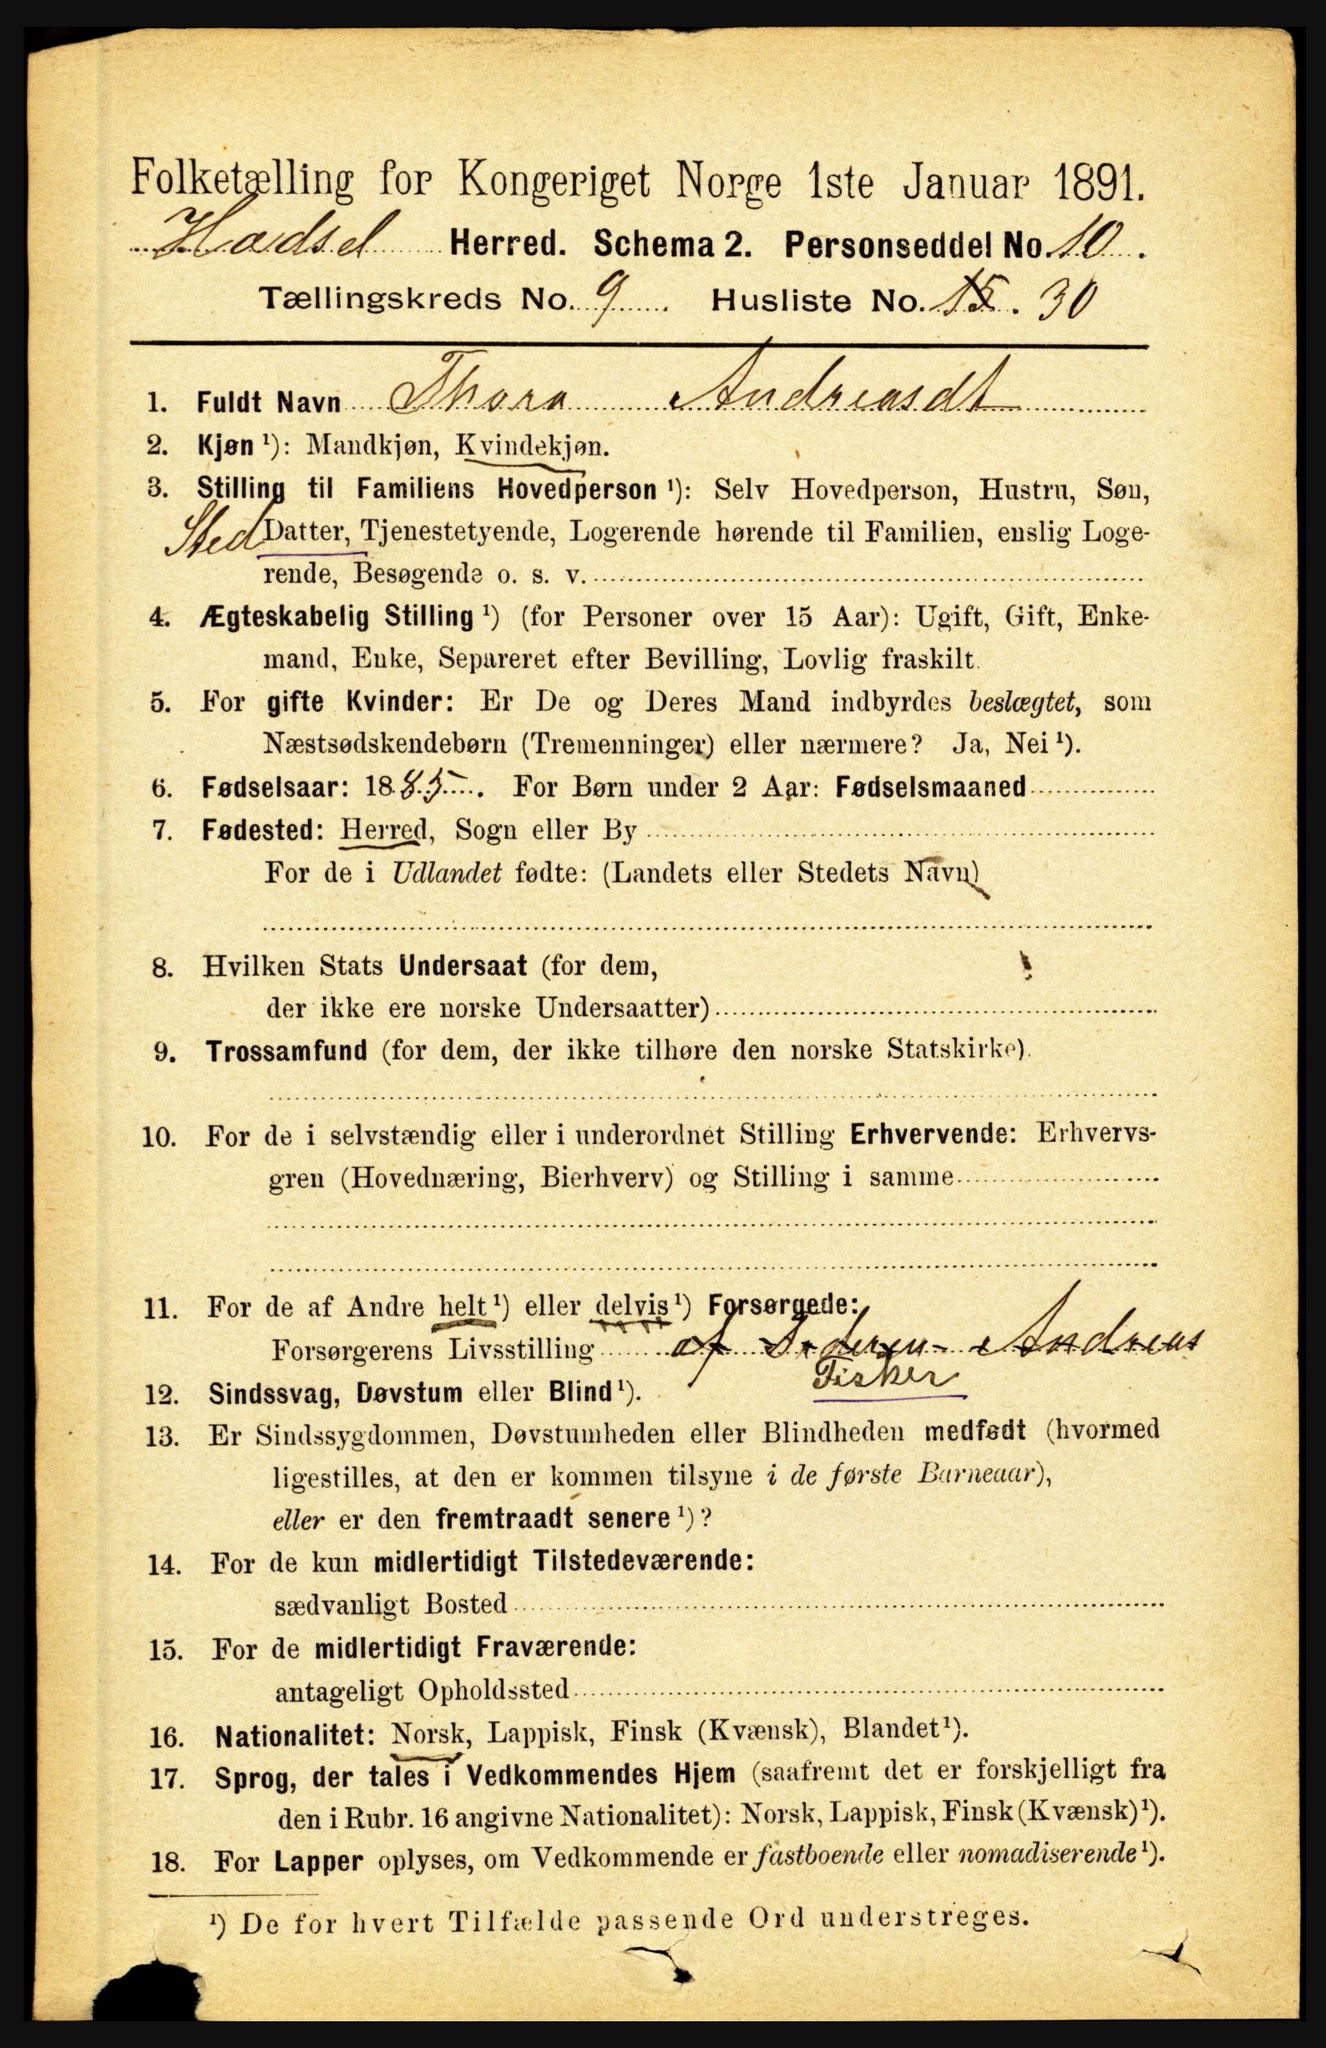 Folketælling for Kongeriget Norge 1ste Januar 1891.
Hadsel Herred. Schema 2. Personseddel No 10.
Tællingskreds No. 9. Husliste No. 15. 30
1. Fuldt Navn Thora Andreasdt
2. Kjøn ¹): Mandkjøn, Kvindekjøn.
3. Stilling til Familiens Hovedperson ¹): Selv Hovedperson, Hustru, Søn,
Sted Datter, Tjenestetyende, Logerende hørende til Familien, enslig Loge-
rende, Besøgende o. s. v.
4. Ægteskabelig Stilling ¹) (for Personer over 15 Aar): Ugift, Gift, Enke-
mand, Enke, Separeret efter Bevilling, Lovlig fraskilt.
5. For gifte Kvinder: Er De og Deres Mand indbyrdes beslægtet, som
Næstsødskendebørn (Tremenninger) eller nærmere? Ja, Nei ¹).
6. Fødselsaar: 1885. For Børn under 2 Aar: Fødselsmaaned
7. Fødested: Herred, Sogn eller By
For de i Udlandet fødte: (Landets eller Stedets Navn)
8. Hvilken Stats Undersaat (for dem,
der ikke ere norske Undersaatter)
9. Trossamfund (for dem, der ikke tilhøre den norske Statskirke).
10. For de i selvstændig eller i underordnet Stilling Erhvervende: Erhvervs-
gren (Hovednæring, Bierhverv) og Stilling i samme
11. For de af Andre helt ¹) eller delvis ¹) Forsørgede:
Forsørgerens Livsstilling af Andreas
Fisker
12. Sindssvag, Døvstum eller Blind ¹).
13. Er Sindssygdommen, Døvstumheden eller Blindheden medfødt (hvormed
ligestilles, at den er kommen tilsyne i de første Barneaar),
eller er den fremtraadt senere ¹)?
14. For de kun midlertidigt Tilstedeværende:
sædvanligt Bosted
15. For de midlertidigt Fraværende:
antageligt Opholdssted
16. Nationalitet: Norsk, Lappisk, Finsk (Kvænsk), Blandet ¹).
17. Sprog, der tales i Vedkommendes Hjem (saafremt det er forskjelligt fra
den i Rubr. 16 angivne Nationalitet): Norsk, Lappisk, Finsk (Kvænsk) ¹).
18. For Lapper oplyses, om Vedkommende er fastboende eller nomadiserende ¹).
¹) De for hvert Tilfælde passende Ord understreges.